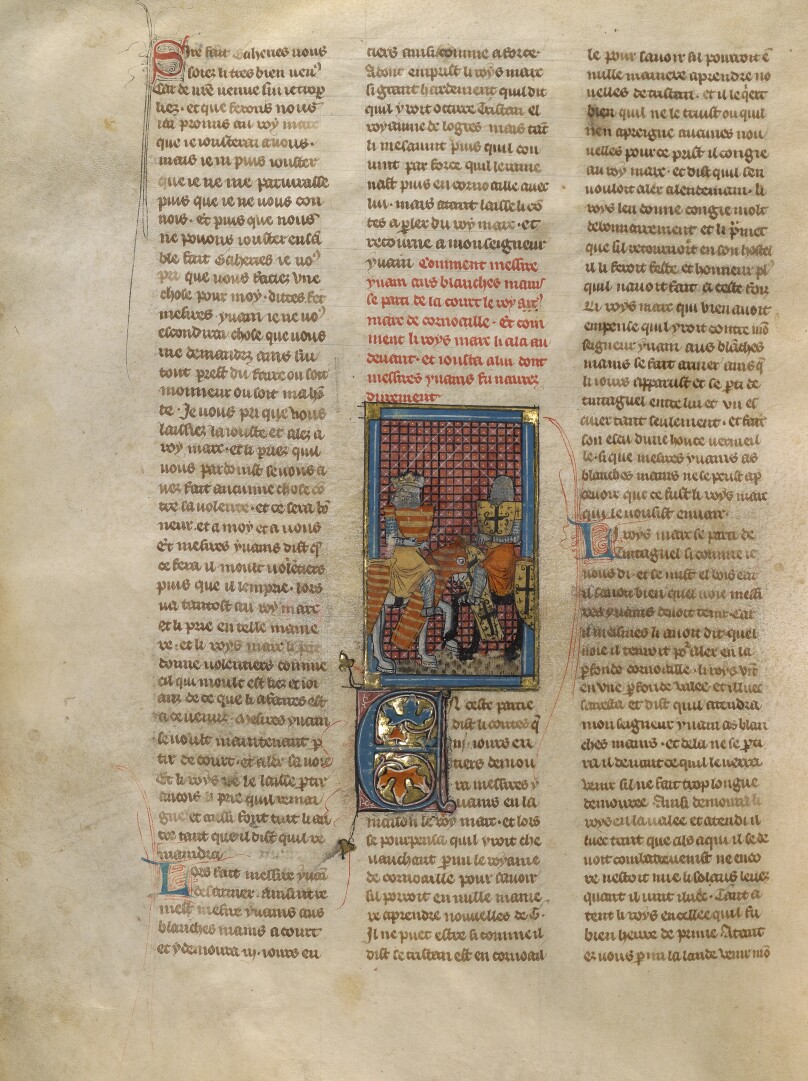 Sire fait Gaheries uous
soiez li tres bien uen9
Car de uostre uenue sui ie trop
liez. et que ferons nous
iai promis au roy marc
que ie iousterai a uous.
mais ie ni puis iouster
que ie ne me pariurasse
puis que ie ne uous con
nois. Et puis que nous
ne poons iouster ensem
ble fait Gaheries ie uo9
pri que uous faciez vne
chose pour moy. dites fet
mesires yuain ie ne uo9
escondirai chose que uous
me demandez ains sui
tout prest du faire ou soit
monneur ou soit ma hon
te. Je uous pri que uous
laissiez la iouste et alez a
roy marc. et li priez quil
uous pardoinst se uous a
uez fait aucunne chose con
tre sa uolente. et ce sera bon
neur. et a moy et a uous
Et mesires yuains dist q
ce fera il moult uolentiers
puis que il lemprie. lors
ua tantost au roy marc
et li prie en telle manie
re. et li roys marc li par
donne uolentiers comme
cil qui moult est liez et ioi
anz de ce que li afaires est
a ce uenuz. Mesires yuain
se uoult maintenant par
tir de court. et aler sa uoie
Et li roys ne le laisse partir
ancois li prie quil remai
gne et ausi font tuit li au
tre tant que il dist quil re
maindra
Lors fait messire yuain
desarmer. Ainsint re
mest mesire yuains aus
blanches mains a court
et y demoura .iij. iours en
tiers ausi comme a force.
Adont emprist li roys marc
si grant hardement quil dit
quil yroit occirre Tristan el
royaume de logres mais tant
li mesauint puis quil con
uint par force quil lenme
nast puis en cornoaille auec
lui. mais atant laisse li con
tes a parler du roy marc. et
retourne a monseigneur
yuain Comment messire
yuain aus blanches mains
se parti de la court le roy
marc de cornoaille. Et com
ment li roys marc li ala au
deuant. et iousta a lui dont
messires yuains fu naurez
durement
En ceste partie
dist li contes q
iij. iours en
tiers demou
ra messires y
uains en la
maison le roy marc. et lors
se pourpensa quil yroit che
uauchant parmi le royaume
de cornoaille pour sauoir
sil porroit en nulle manie
re aprendre nouuelles de .T.
Il ne puet estre si comme il
dist se tristan est en cornoail
le pour sauoir sil pourroit en
nulle maniere aprendre no
uelles de tristan. et il le qiert
bien quil ne le truist ou quil
nen apreigne aucunes nou
uelles pour ce prist il congie
au roy marc. et dist quil sen
uouloit aler a lendemain. li
roys len donne congie molt
debonnairement et li pramet
que sil retournoit en son hostel
il li feroit feste et honneur pl9
quil nauoit fait a ceste foiz
Li roys marc qui bien auoit
empense quil yroit contre mon
seigneur yuain aus blanches
mains se fait armer ainsi que
li iours apparust et se parti de
tintaguel entre lui et vn es
cuier tant seulement. et fait
son escu dune houce uermeil
le. si que mesires yuains as
blanches mains ne se peust ap
ceuoir que ce fust li roys marc
qui le uousist enuair.
Li roys marc se parti de
Tintaguel si comme ie
uous di. et se mist el bois car
il sauoit bien quel uoie messi
res yuains deuoit tenir. Car
il meismes li auoit dit quel
uoie il tenroit pour aler en la
parfonde cornoaille. li roys vit
en vne parfonde ualee. et illuec
sarresta et dist quil atendra
mon seigneur yuain as blan
ches mains. et dela ne se parti
ra il deuant ce quil le uerra
uenir sil ne fait trop longue
demouree. Ainsi demoura li
roys en la ualee et atendi il
luec tant que cils a qui il se de
uoit combatre uenist ne enco
re nestoit mie li solaus leuez
quant il uint iluec. Tant a
tent li roys en cellee quil fu
bien heure de prime. Atant
ez uous parmi la lande venir mon